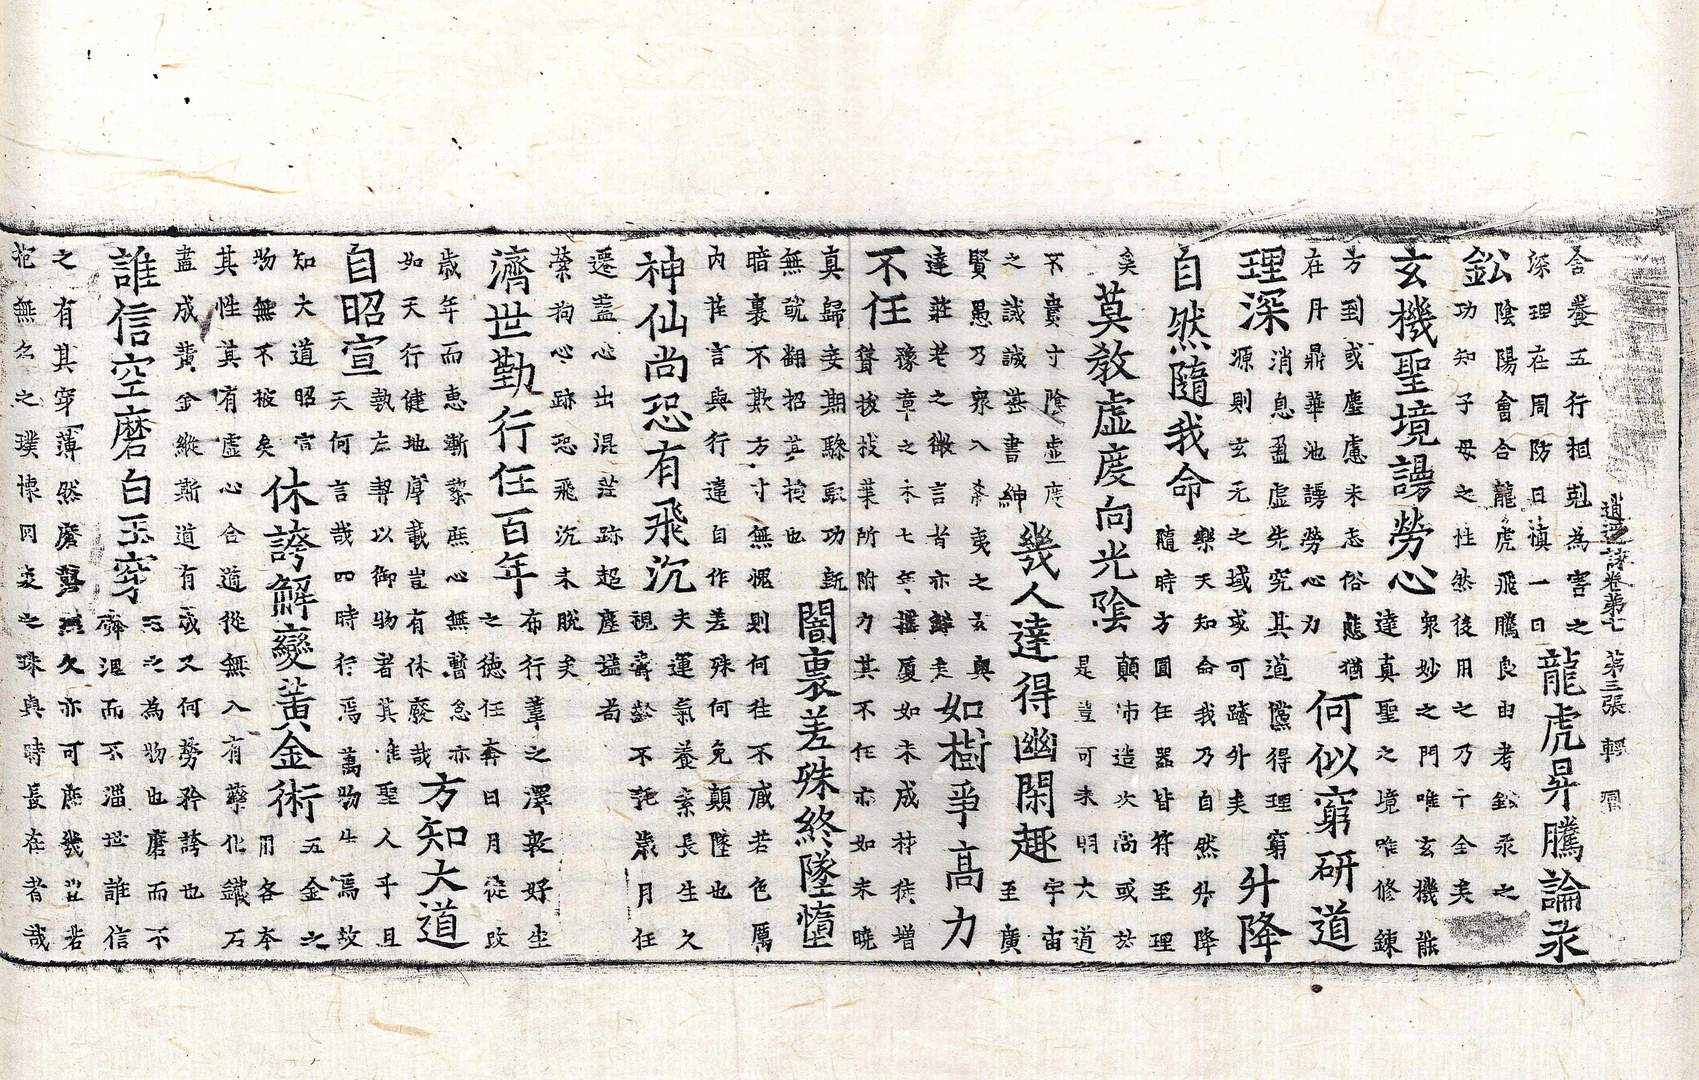 逍遙詠卷第七 第三張 輕
含養五行相剋為害之
深理在周防日慎一日
龍虎昇騰論汞
鈆
陰陽會合龍虎飛騰良由考鈆汞之
功知子母之性然後用之乃十全矣
玄機聖境謾勞心
衆妙之門唯玄機能
達真聖之境唯修錬
方到或塵慮未忘俗態猶
在丹鼎華池謾勞心力
何似窮研道
理深
消息盈虛先究其道儻得理窮
源則玄元之域或可躋升矣
升降
自然隨我命
樂天知命我乃自然升降
隨時方圓任器皆符至理
矣
莫教虛度向光陰
顛沛造次尚或於
是豈可未明大道
不貴寸陰虛度
之誠誡甚書紳
幾人達得幽閑趣
宇宙
至廣
賢愚乃衆入希夷之玄奧
達莊老之微言者亦鮮矣
如樹爭高力
不任
豫章之木七年擢厦如未成材徒增
聳拔枝葉所附力其不任亦如未曉
真歸妄期驟功
無就翻招其損也
闇裏差殊終墜墮
暗裏不欺方寸無愧則何往不臧若色厲
内荏言與行違自作差殊何免顛墜也
神仙尚恐有飛沉
夫運氣養素長生久
視齡不託歲月任
遷蓋心出混茫跡超塵壒者
縈狥心跡恐飛沉未脫矣
濟世勤行任百年
布行葦之澤敦好生
之德任奔日月從改
歲年而惠漸黎庶心無暫怠亦
如天行健地厚載豈有休廢哉
方知大道
自昭宣
執左契以御物者其唯聖人乎且
天何言哉四時行焉萬物生焉故
知大道昭宣
物無不被矣
休誇解變黃金術
五金之
用各本
其性其有虛心合道從無入有藥化鐵石
盡成黃金縱斯道有成又何勞矜誇也
誰信空磨白玉穿
玉之為物也磨而不
磷涅而不淄世誰信
之有其穿薄然磨礱久亦可庶幾豈若
抱無名之璞懷罔象之珠與時長在者哉